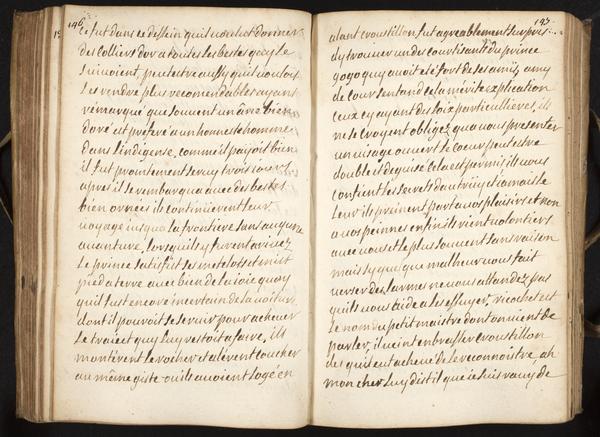 146
ce fut dans ce dessein quil voulut donner
des colliers dor a toutes les bestes quoy le
suivoient, peutestre aussy quil vouloit
les rendre plus recomendables ayant
remarqué que souvent un âne bien
doré est preferé a un honneste homme
dans lindigense, comme il payoit bien
il fut prontement servy trois jours
apres il se rembarqua avec des bestes
bien ornées ils continüerent leur
voyage jusqua la frontiere sans aucune
avanture, lorsquils y furent arivez
le prince satisfit ses matelots et mist
pied a terre avec bien de la joie quoy
quil fust encore incertain de la voiture
dont il pouvoit se servir pour achever
le traiect quy luy restoit a faire, ils
monterent le rocher et alerent coucher
au même giste ou ils avoient logé en
147
alant croustillon fut agreablement surpris
dy trouver un des courtisants du prince
gogo quy avoit eté fort de ses amis, amy
de cour sentand cela mérite explication
ceux cy ayant des loix particullieres, ils
ne se croyent obligez qua vous presenter
un visage ouvert le coeur peutestre
double et deguisé cela est permis, ils vous
confient les secrets dautruy et jamais le
leur ils preinent part a vos plaisirs et non
a vos peinnes enfin ils rient volontiers
avec vous et le plus souvent sans raison
mais sy quelque malheur vous fait
verser des larmes ne vous attandez pas
quils vous aide a les essuyer, ricochet est
le nom du petit maistre dont on vient de
parler, il vient embrasser croustillon
des quil eut achevé de le reconnoistre, ah
mon cher luy dist il que je suis ravy de